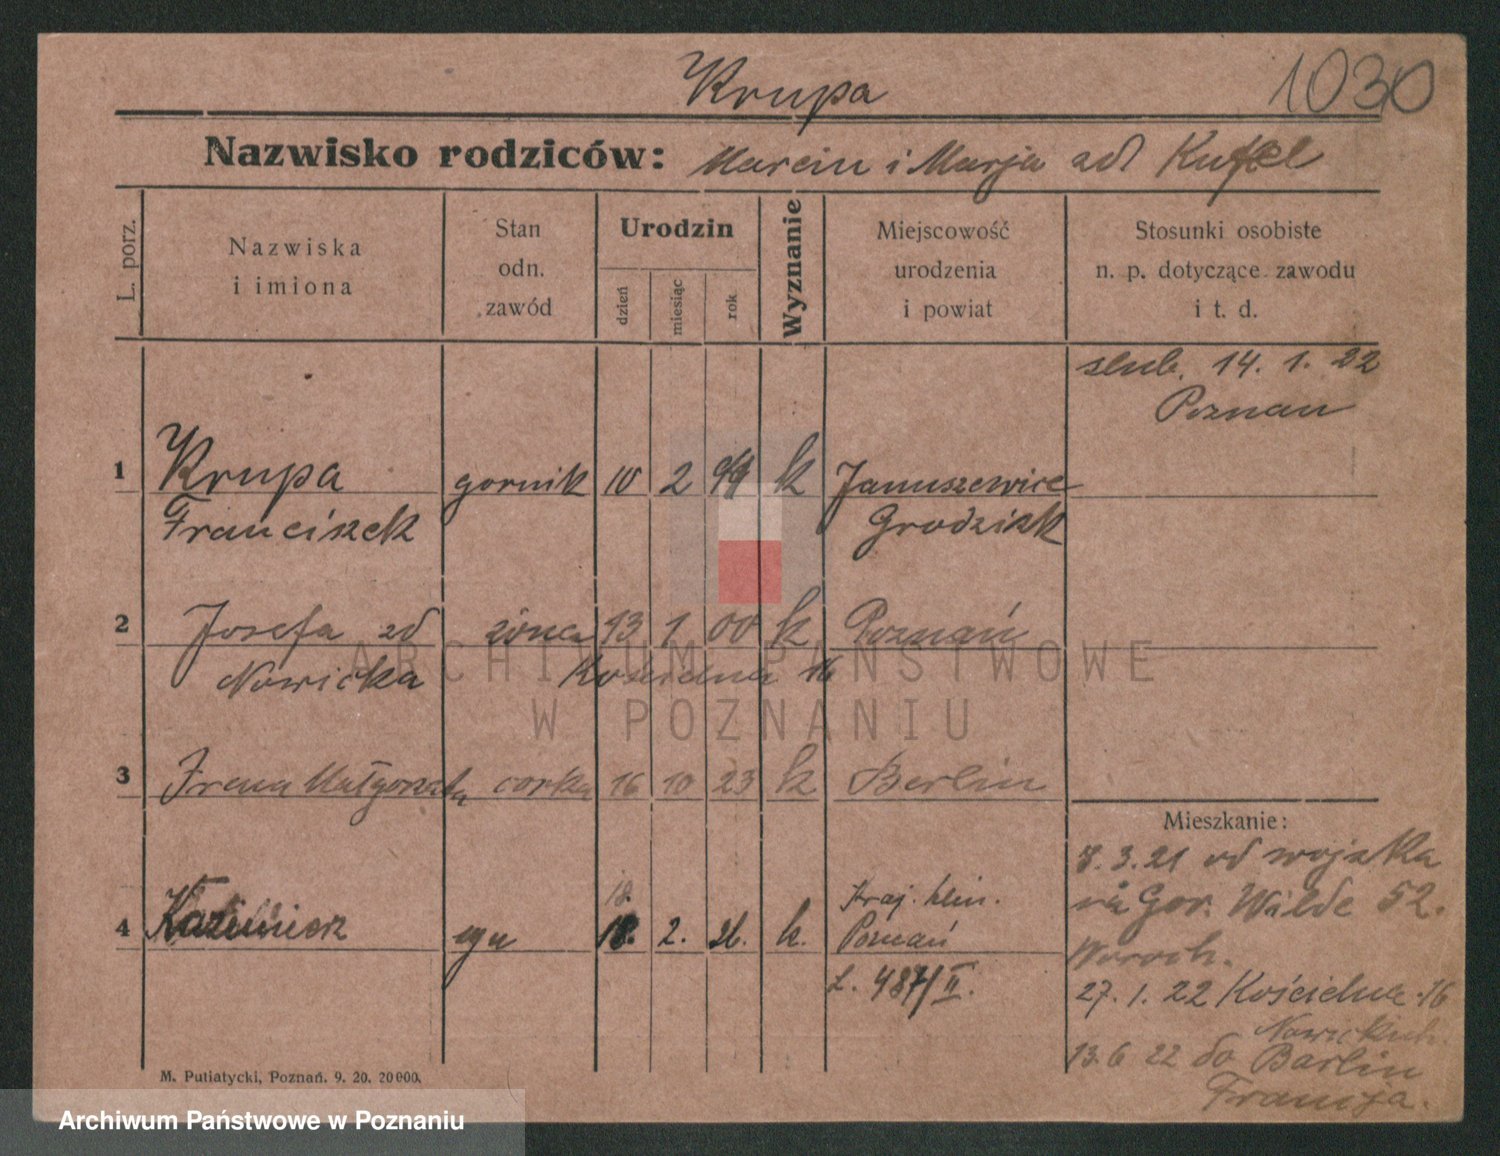 Krupa
1030
Nazwisko rodziców: Marcin i Marja zd Kufel
L. porz.
Nazwiska
i imiona
Stan
odn.
zawód
Urodzin
dzień
miesiąc
rok
Wyznanie
Miejscowość
urodzenia
i powiat
Stosunki osobiste
n. p. dotyczące zawodu
i t. d.
slub. 14. 1. 22
Poznan
1 Krupa gornik 10 2 99 k Januszewice
Franciszek Grodzisk
2 Josefa zd żona 13 1 00 k Poznań
Nowicka Kościelna 16
3 Irena Małgorzata corka 16 10 23 k Berlin
Mieszkanie:
8. 3. 21 od wojska
na Gor. Wilde 52.
18.
4 Kazimierz syn 18. 2. 26. k. Poznań
L. 487/II.
27. 1. 22 Kościelna 16
Nowickich.
13. 6 22 do Barlin
Francja.
M. Putiatycki, Poznań. 9. 20. 20000.
ARCHIWUM PAŃSTWOWE
W POZNANIU
Archiwum Państwowe w Poznaniu